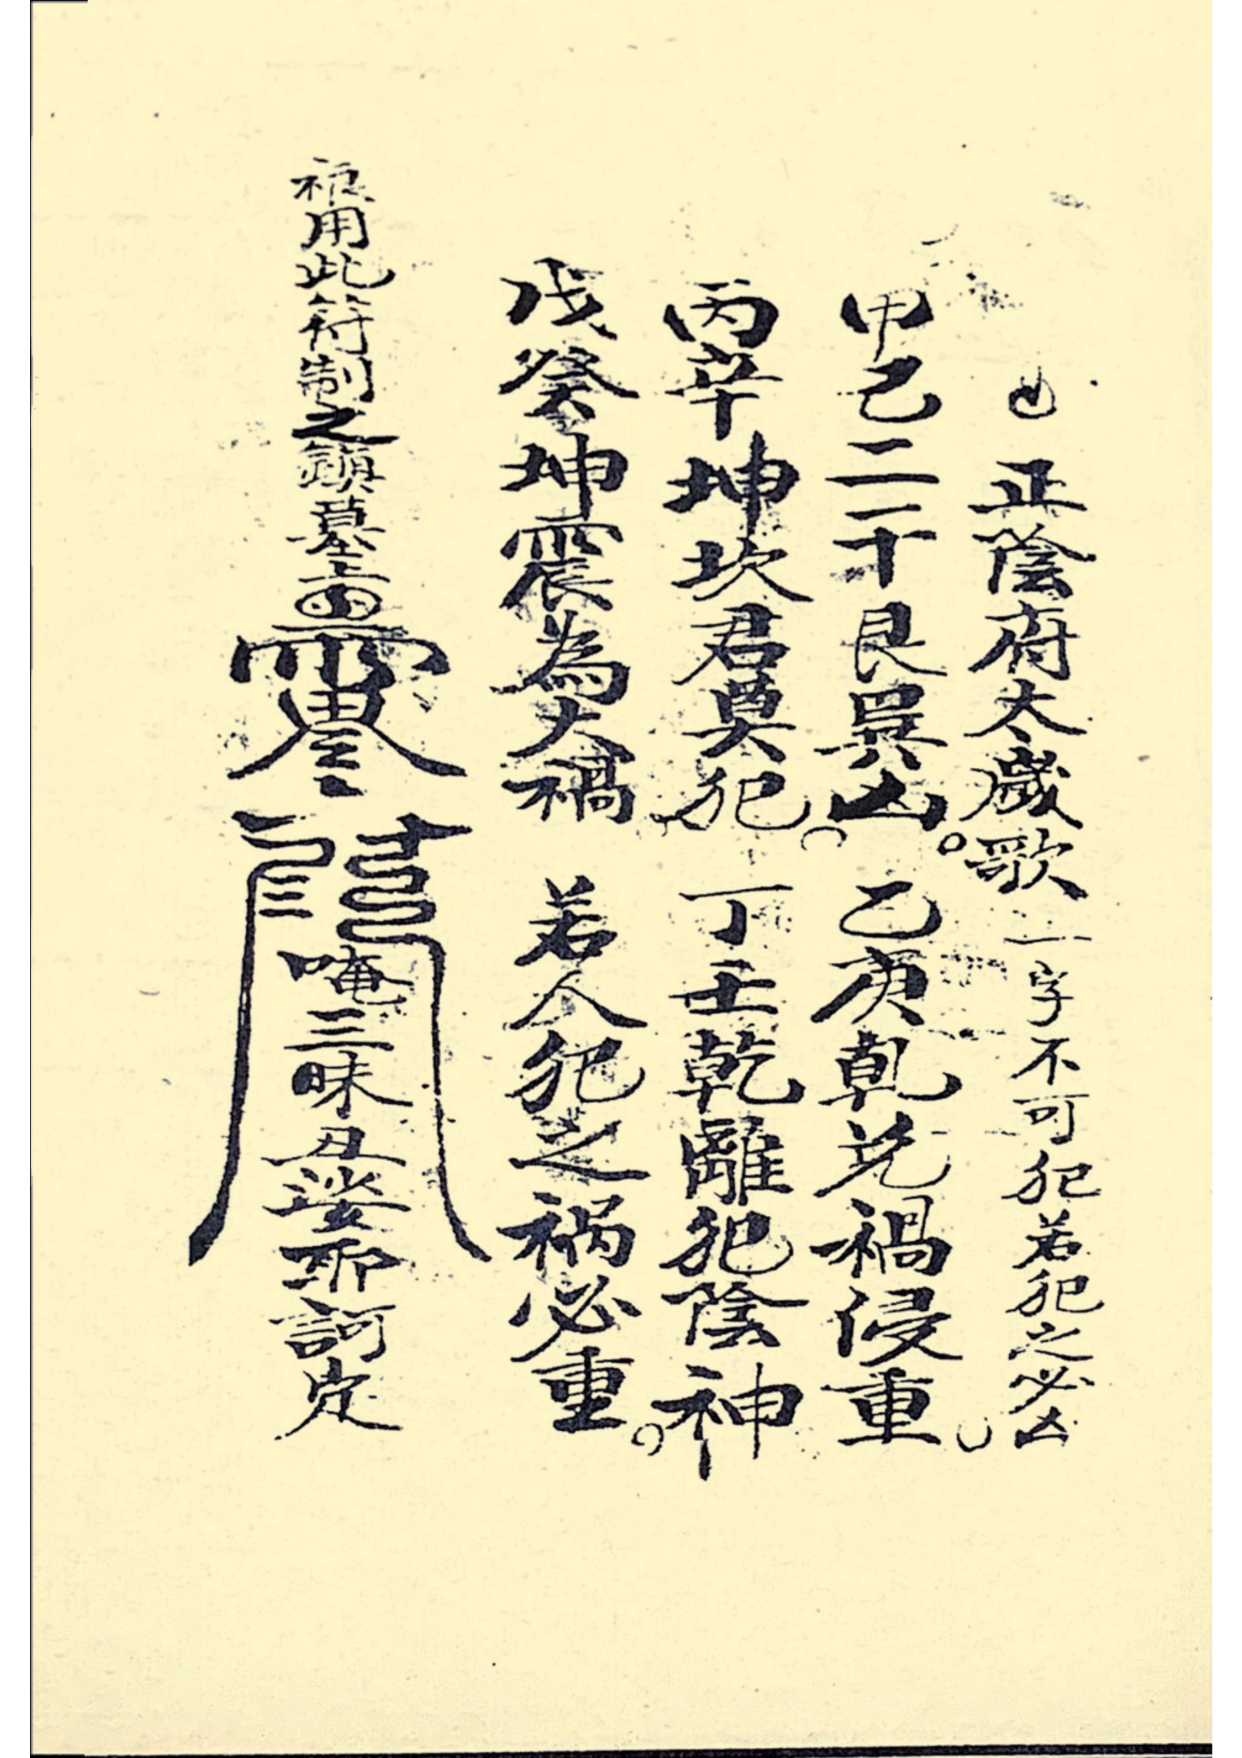 正陰府太歲歌一字不可犯若犯之必凶
甲己二干艮巽凶。乙庚乾兌禍侵重
丙辛坤坎君莫犯。丁壬乾離犯陰神
戊癸坤震為大禍 若人犯之祸必重。
用此符制之鎮墓 唵三昧丑娑耶訶定